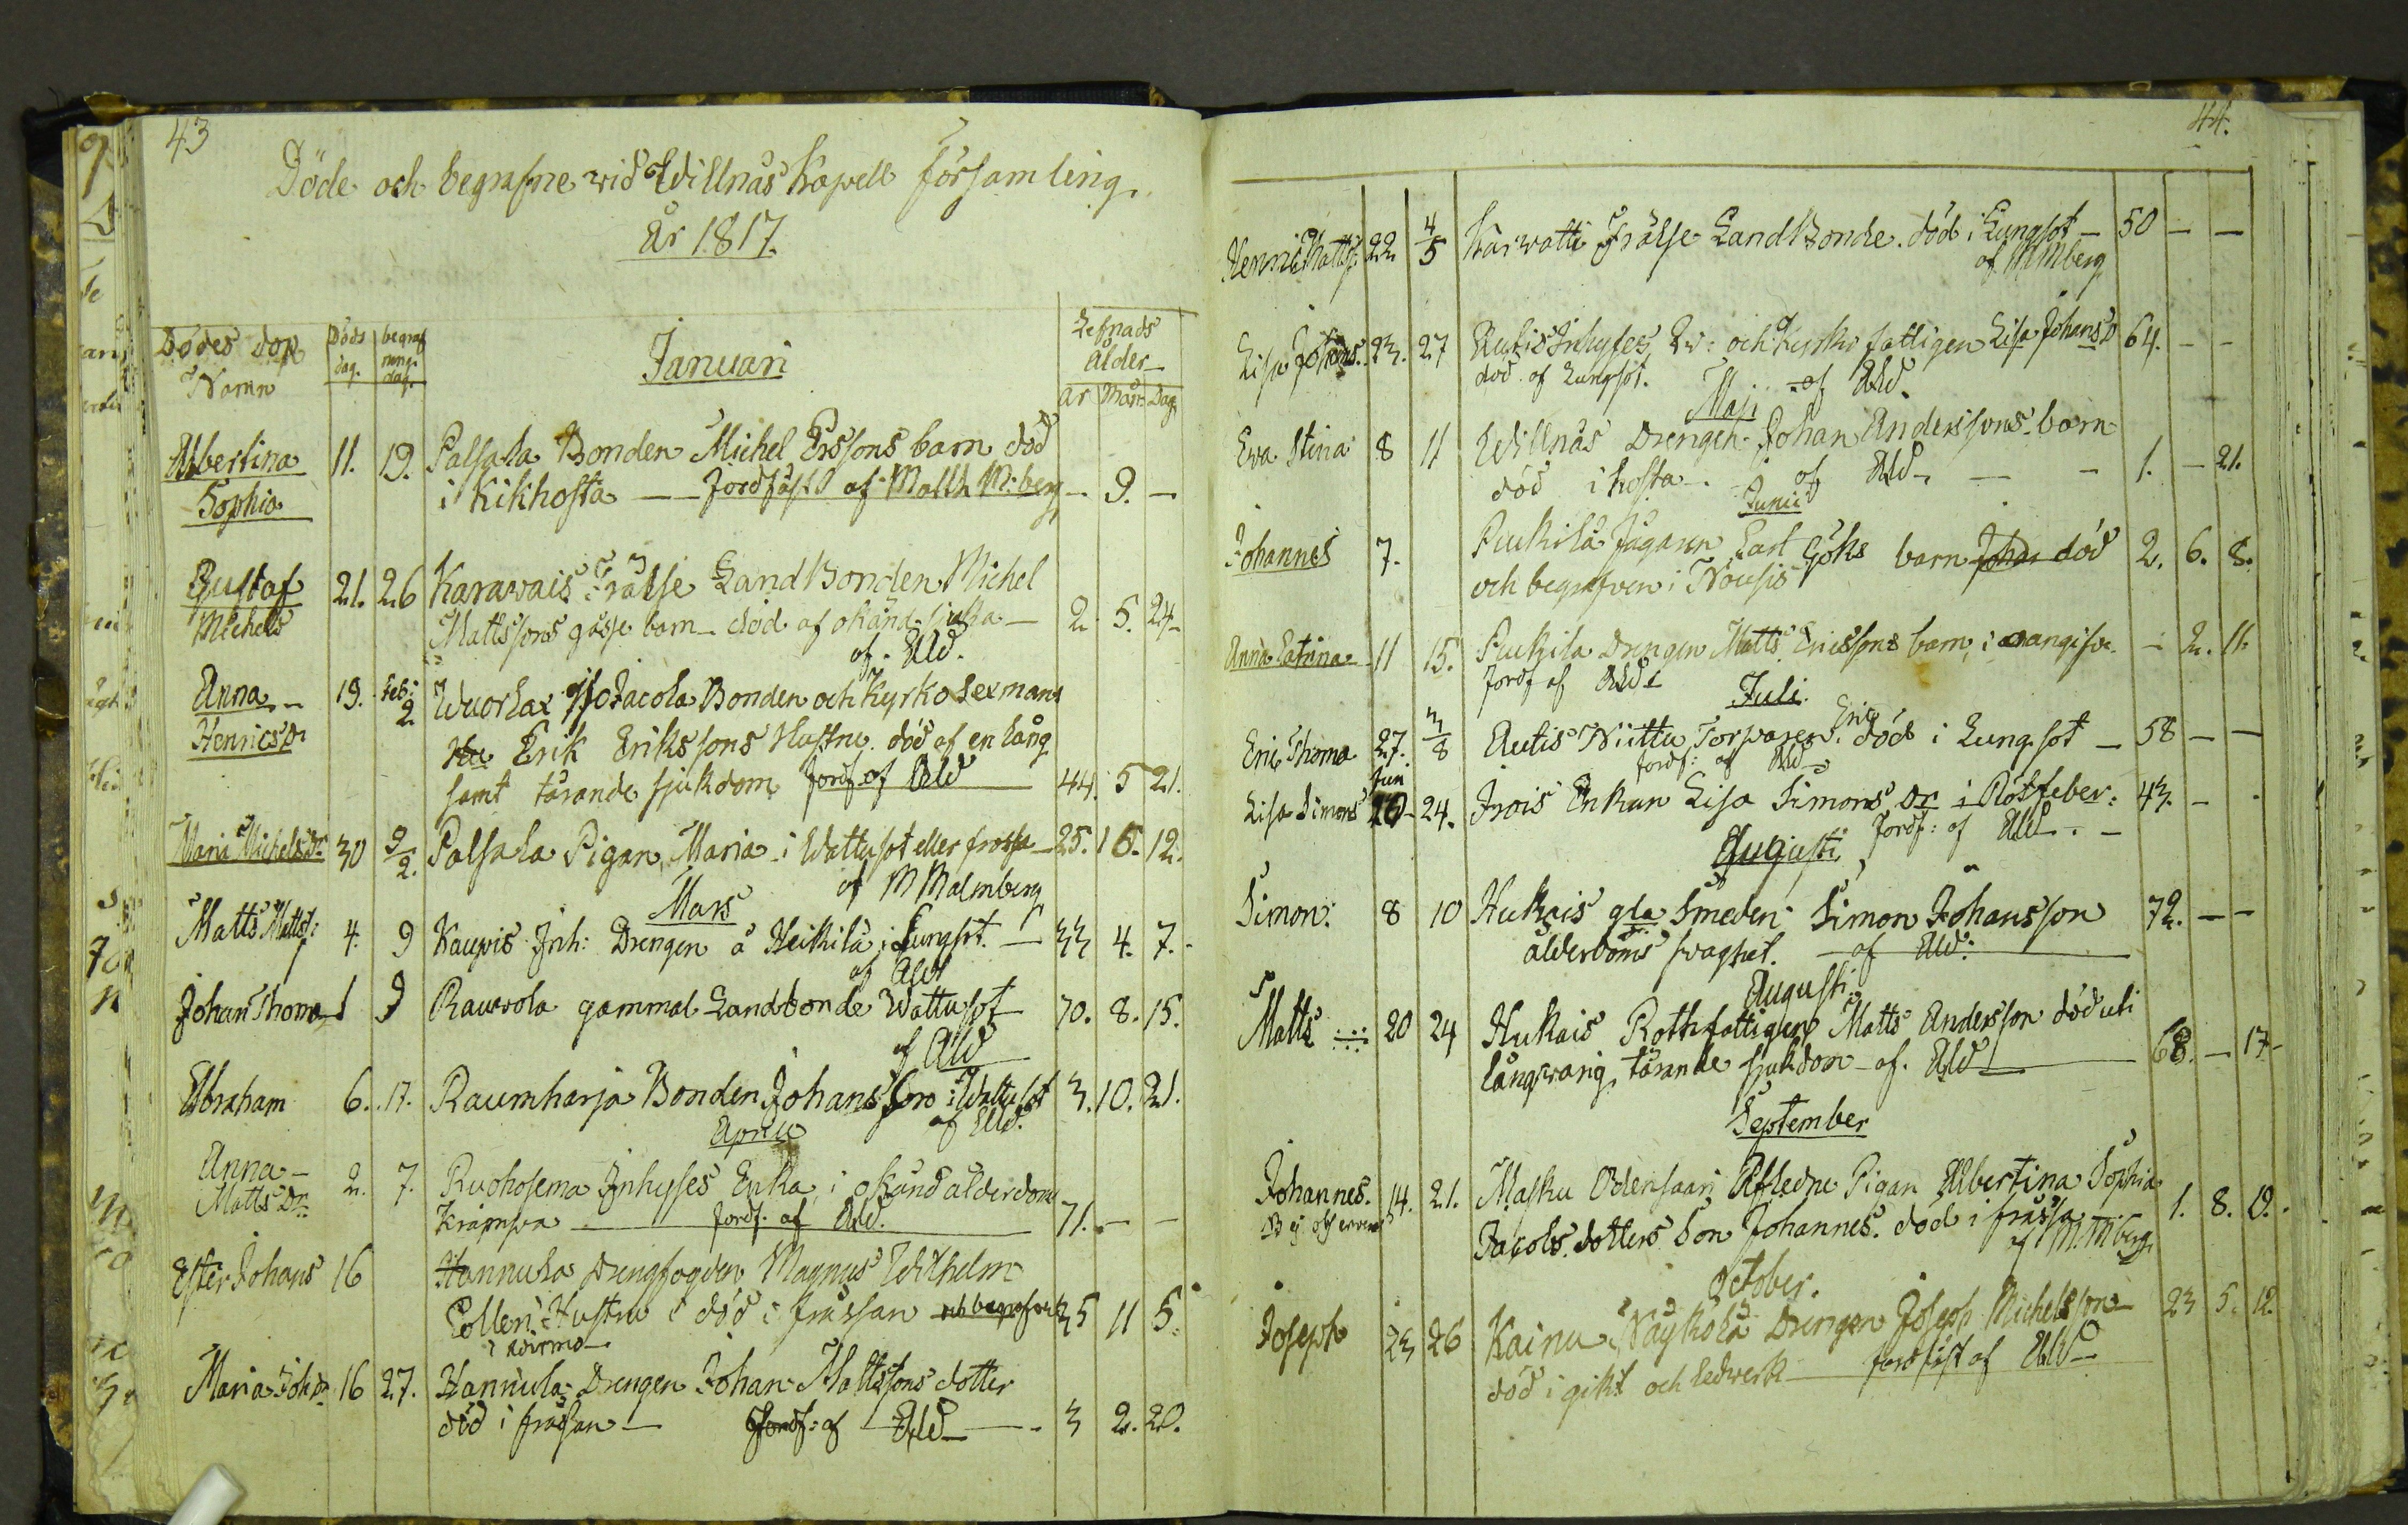 43
Döde och begrafne wid Willnäs Kapell församling
År 1817.
Dödes dop Namn
Döds dag.
begrafnings dag.
Januari
Lefnads ålder
år Mån: Dag
Albertina Sophia 11. 19. Palsala Bonden Michel Erssons barn död
i Kikhosta — Jordfäst af Matth M:berg — 9. —
Gustaf Michels 21. 26 Karawais Frälse LandBonden Michel
Mattssons gosse barn död af okänd sjuka — 2. 5. 24
af Ald.
Anna Henrics Dr 19. Feb: 2 Bonden och Kyrko Sexmans
Erik Erikssons Hustru död af en lång
samt tärande sjukdom Jordf af Ald 44. 5 21.
Maria Michels Dr. 30 9/2. Palsala Pigan Maria i Wattusot eller frossa 25. 12.
af M Malmberg
Mars
Matts Matts: 4. 9 Kaupis Inh: Drengen å Heikilä i Lungsot. — 33 4. 7.
af Ald
Johan Thoma 1 9 Rauwola gammal Landbonde Wattusot 70. 8. 15.
af Ald
Abraham 6. 17. Raumharja Bonden Johans Son i Wattusot 3. 10. 21.
af Ald.
April
Anna Matts Dr. 2. 7. Ruohosema Inhyses Enka, i okänd ålderdoms
krämpa — Jordf. af Ald. 71. — —
Ester Johans 16 Hannula Drengfogden Magnus Wilhelm
Hustru död i frässan och begrafwen 35 11 5.
i Wirmo
Maria Joh Dr. 16 27. Hannula Drengen Johan Mattssons dotter
död i frässan — Jordf: af Ald — 3 2. 20.
44.
Henric Matts: 22 4/5 Karwatti Frälse LandBonde. död i Lungsot — 50 — —
af M Mberg
Lisa Johans. 23. 27 Autis Inhyses och Kyrko fattigen Lisa Johans D 64. — —
död af Lungsot. af Ald.
Maji
Eva Stina 8 11 Willnäs Drengen Johan Anderssons barn
död i hosta — af Ald — 1. — 21.
Junii
Johannes 7. Puukila Jägaren Carl Göks barn Johan död 2. 6. 8.
och begrafven i Nousis
Anna Catrina 11 15. Puukila Drengen Matts Ericssons barn, i — 2. 11.
Jordf af Ald
Juli
Eric Thoma 27. 3/8 Autis Niittu Torparen Eric död i Lungsot — 58 — —
Jordf: af Ald
Lisa Simons Jun 10 24. Irois Enkan Lisa Simons Dr i Rötfeber: 43. —
Jordf: af Ald. —
Augusti
Simon: 8 10 Hukais gla Smeden Simon Johansson 72. — —
ålderdoms swaghet. — af Ald:
Augusti
Matts 20 24 Hukais Rothfattigen Matts Andersson död uti
långwarig tärande sjukdom — af. Ald 68. — 17
September
Johannes. 14. 21. Masku Odensaari Afledne Pigan Albertina Sophia
Jacobs dotters Son Johannes. död i frässa 1. 8. 19.
af M: Mberg
October.
Joseph 23 26 Kainu Näykälä Drengen Joseph Michelsson 23 5. 12.
död i gikt och ledwerk — Jordfäst af Ald